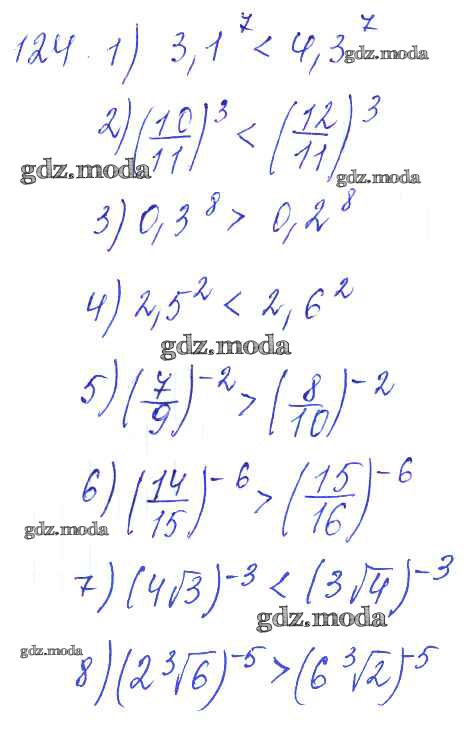 124. 1) 3,1⁷ < 4,3⁷
gdz.moda
2) (10/11)³ < (12/11)³
gdz.moda
gdz.moda
3) 0,3⁸ > 0,2⁸
4) 2,5² < 2,6²
gdz.moda
5) (7/9)⁻² > (8/10)⁻²
6) (14/15)⁻⁶ > (15/16)⁻⁶
gdz.moda
7) (4√3)⁻³ < (3√4)⁻³
gdz.moda
gdz.moda
8) (2∛6)⁻⁵ > (6∛2)⁻⁵